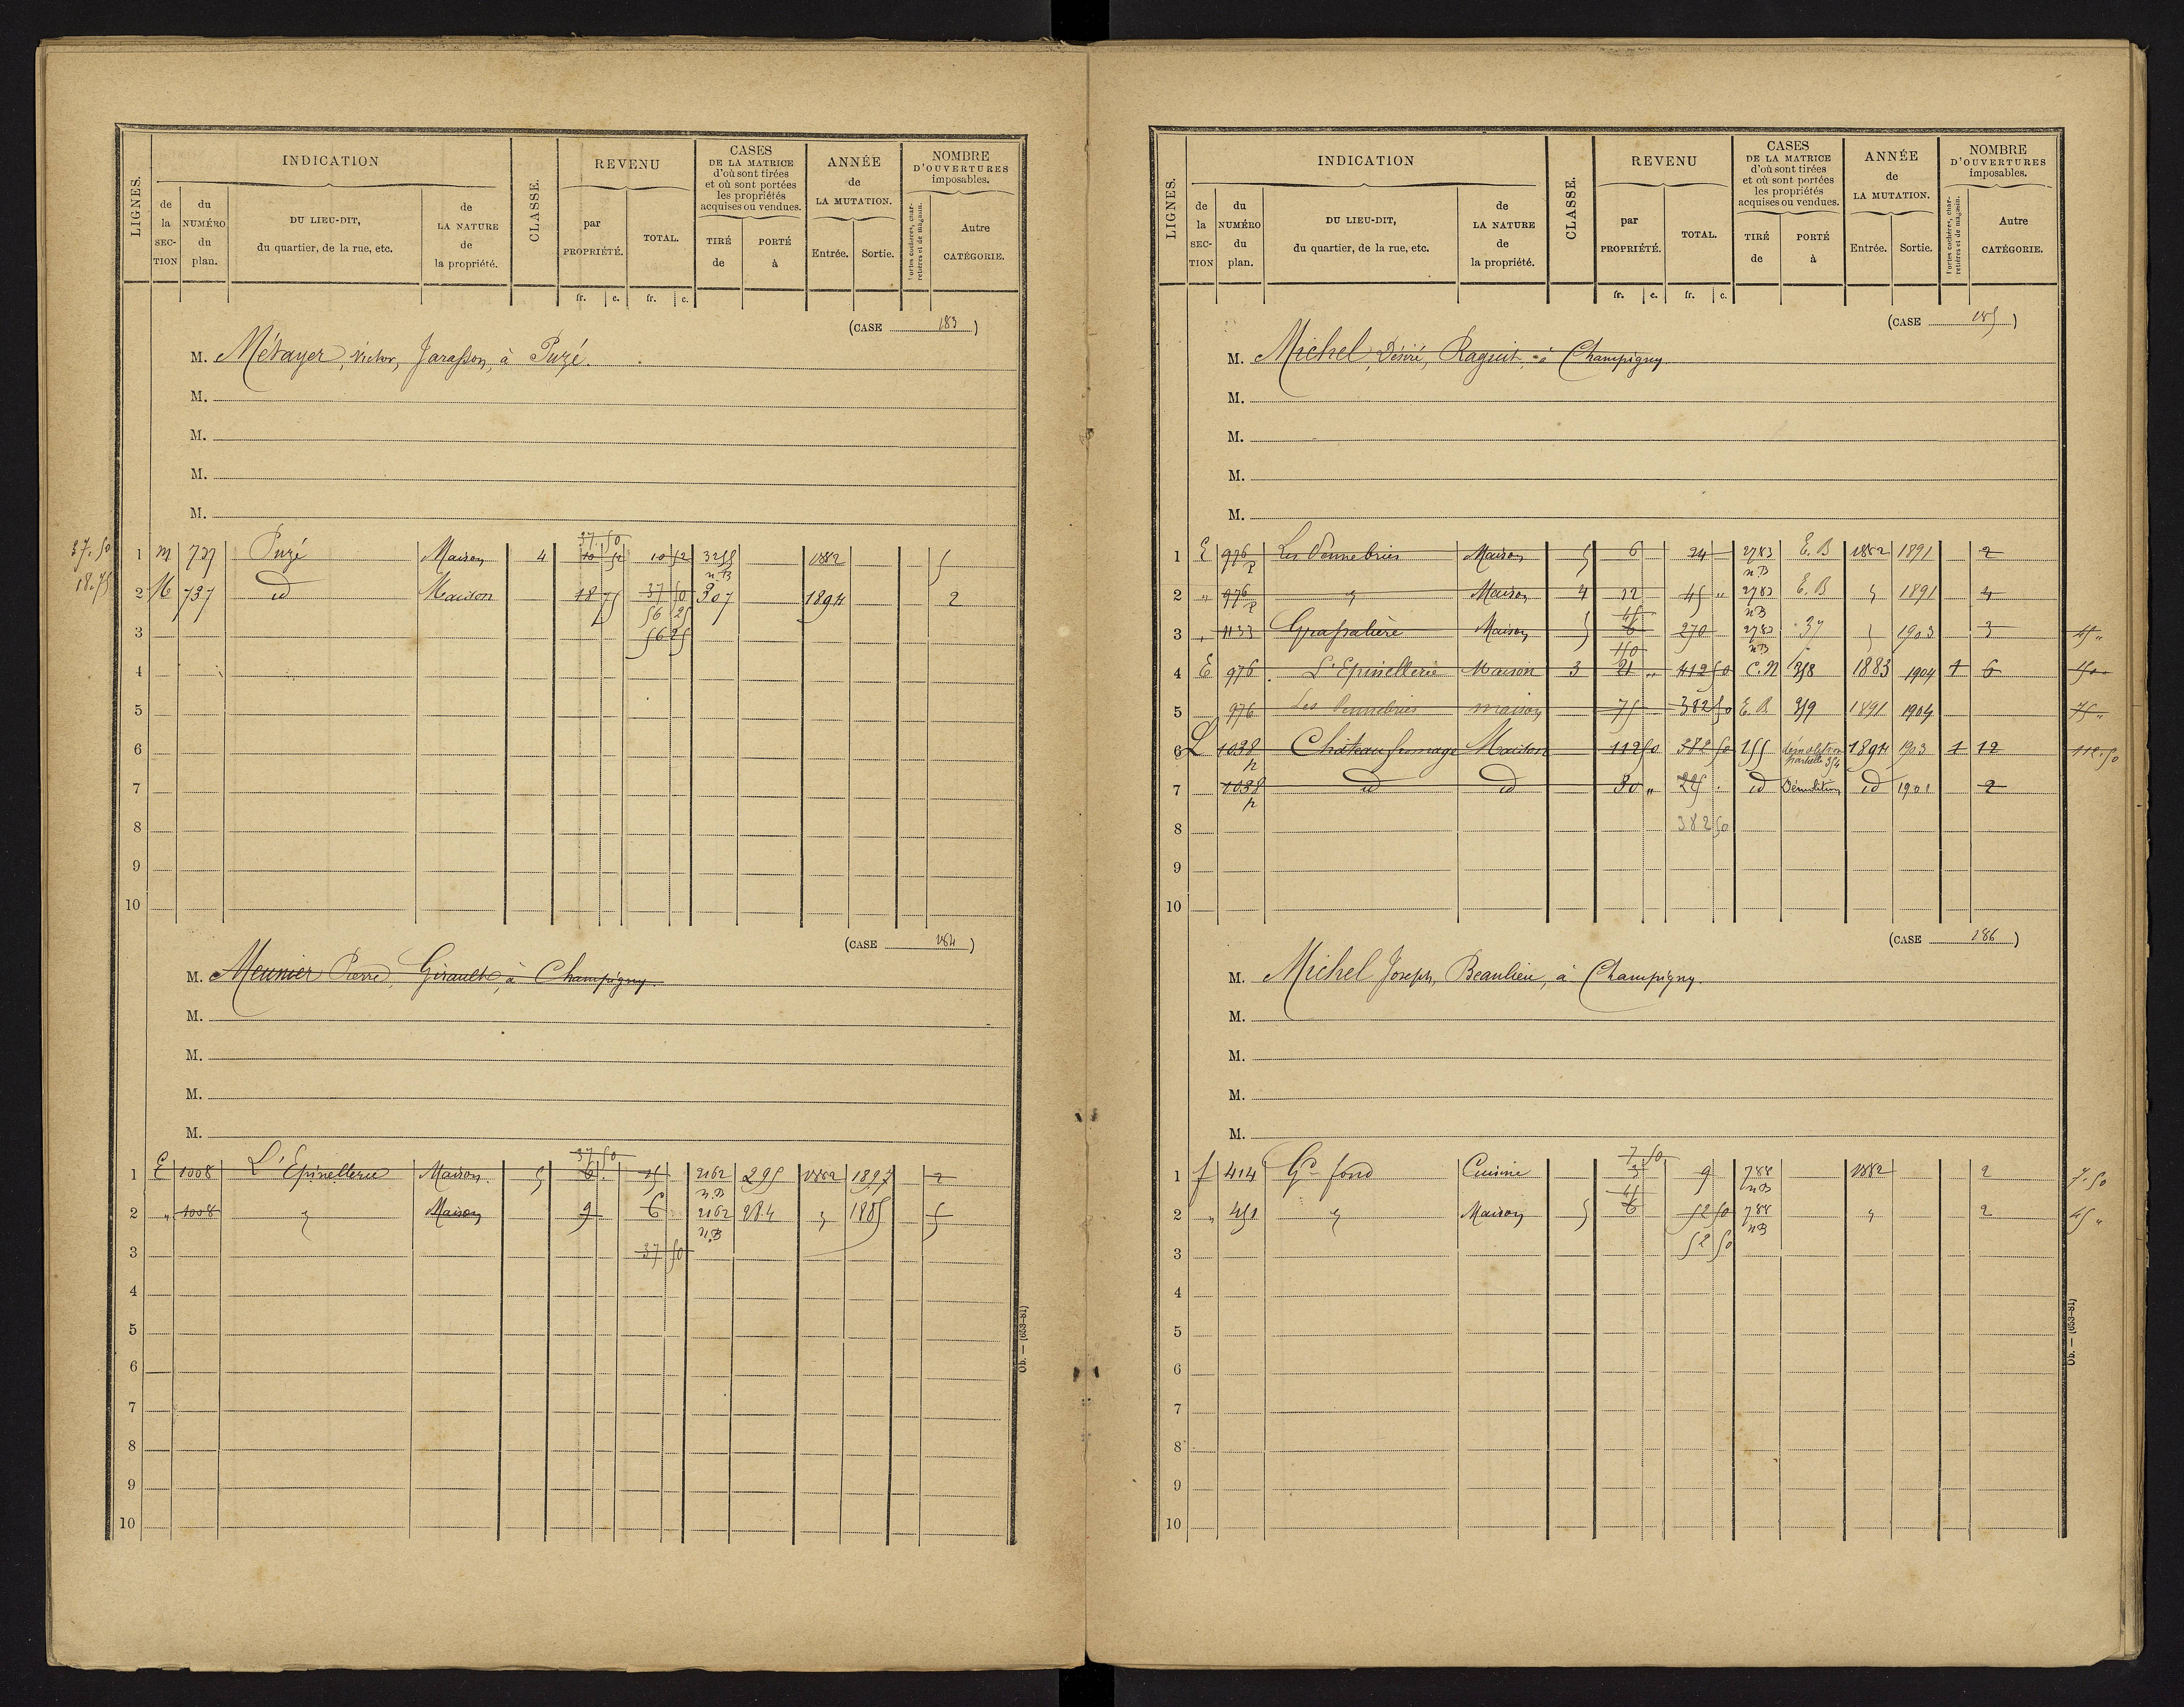 LIGNES.
INDICATION
de la SECTION
du NUMÉRO du plan.
DU LIEU-DIT, du quartier, de la rue, etc.
de LA NATURE de la propriété.
CLASSE.
REVENU
par PROPRIÉTÉ.
TOTAL.
CASES DE LA MATRICE d'où sont tirées et où sont portées les propriétés acquises ou vendues.
TIRÉ de
PORTÉ à
ANNÉE de LA MUTATION.
Entrée.
Sortie.
NOMBRE D'OUVERTURES imposables.
Portes cochères, charretières et de magasin.
Autre CATÉGORIE.
fr. c. fr. c.
(CASE 183)
M. Métayer, Victor, Jarasson, à Puzé.
M.
M.
M.
M.
37 50
37.50 1 m 737 Puzé Maison 4 10 52 10 52 3255 1882 5
n.B
18.75 2 M 737 id Maison 18 75 37 50 307 1894 2
56 25
3 56 25
4
5
6
7
8
9
10
(CASE 184)
M. Meunier Pierre, Girault, à Champigny.
M.
M.
M.
M.
37 50
1 E 1008 L'Epinellerie Maison 5 6 15 2162 295 1882 1897 2
n.B
2 „ 1008 „ Maison 9 6 2162 284 „ 1885 5
n.B
3 37 50
4
5
6
7
8
9
10
Ob. — (653-81)
LIGNES.
INDICATION
de la SECTION
du NUMÉRO du plan.
DU LIEU-DIT, du quartier, de la rue, etc.
de LA NATURE de la propriété.
CLASSE.
REVENU
par PROPRIÉTÉ.
TOTAL.
CASES DE LA MATRICE d'où sont tirées et où sont portées les propriétés acquises ou vendues.
TIRÉ de
PORTÉ à
ANNÉE de LA MUTATION.
Entrée.
Sortie.
NOMBRE D'OUVERTURES imposables.
Portes cochères, charretières et de magasin.
Autre CATÉGORIE.
fr. c. fr. c.
(CASE 185)
M. Michel, Désiré, Raguit, à Champigny
M.
M.
M.
M.
1 E 976 p Les Maison 5 6 24 2783 E.B 1882 1891 2
n.B
2 „ 976 p „ Maison 4 12 45 „ 2783 E.B „ 1891 4
45 nB
3 „ 1133 Grassalière Maison 5 6 270 2783 37 „ 1903 3 45 „
150 nB
4 E 976 L'Epinellerie Maison 3 21 „ 412 50 C.N 358 1883 1904 1 6
5 976 Les maison 75 382 50 E.B. 359 1891 1904 75 „
6 L 1038 p Château fromage Maison 112 50 382 50 155 démolition partielle 354 1894 1903 1 12 112.50
7 1038 p id id 30 „ 225 id Démolition id 1901 2
8 382 50
9
10
(CASE 186)
M. Michel Joseph, Beaulieu, à Champigny.
M.
M.
M.
M.
7 50
1 f 414 Gd fond Cuisine 3 9 788 1882 2 7.50
45 nB
2 „ 451 „ Maison 5 6 52 50 788 „ 2 45 „
nB
3 52 50
4
5
6
7
8
9
10
Ob. — (653-81)